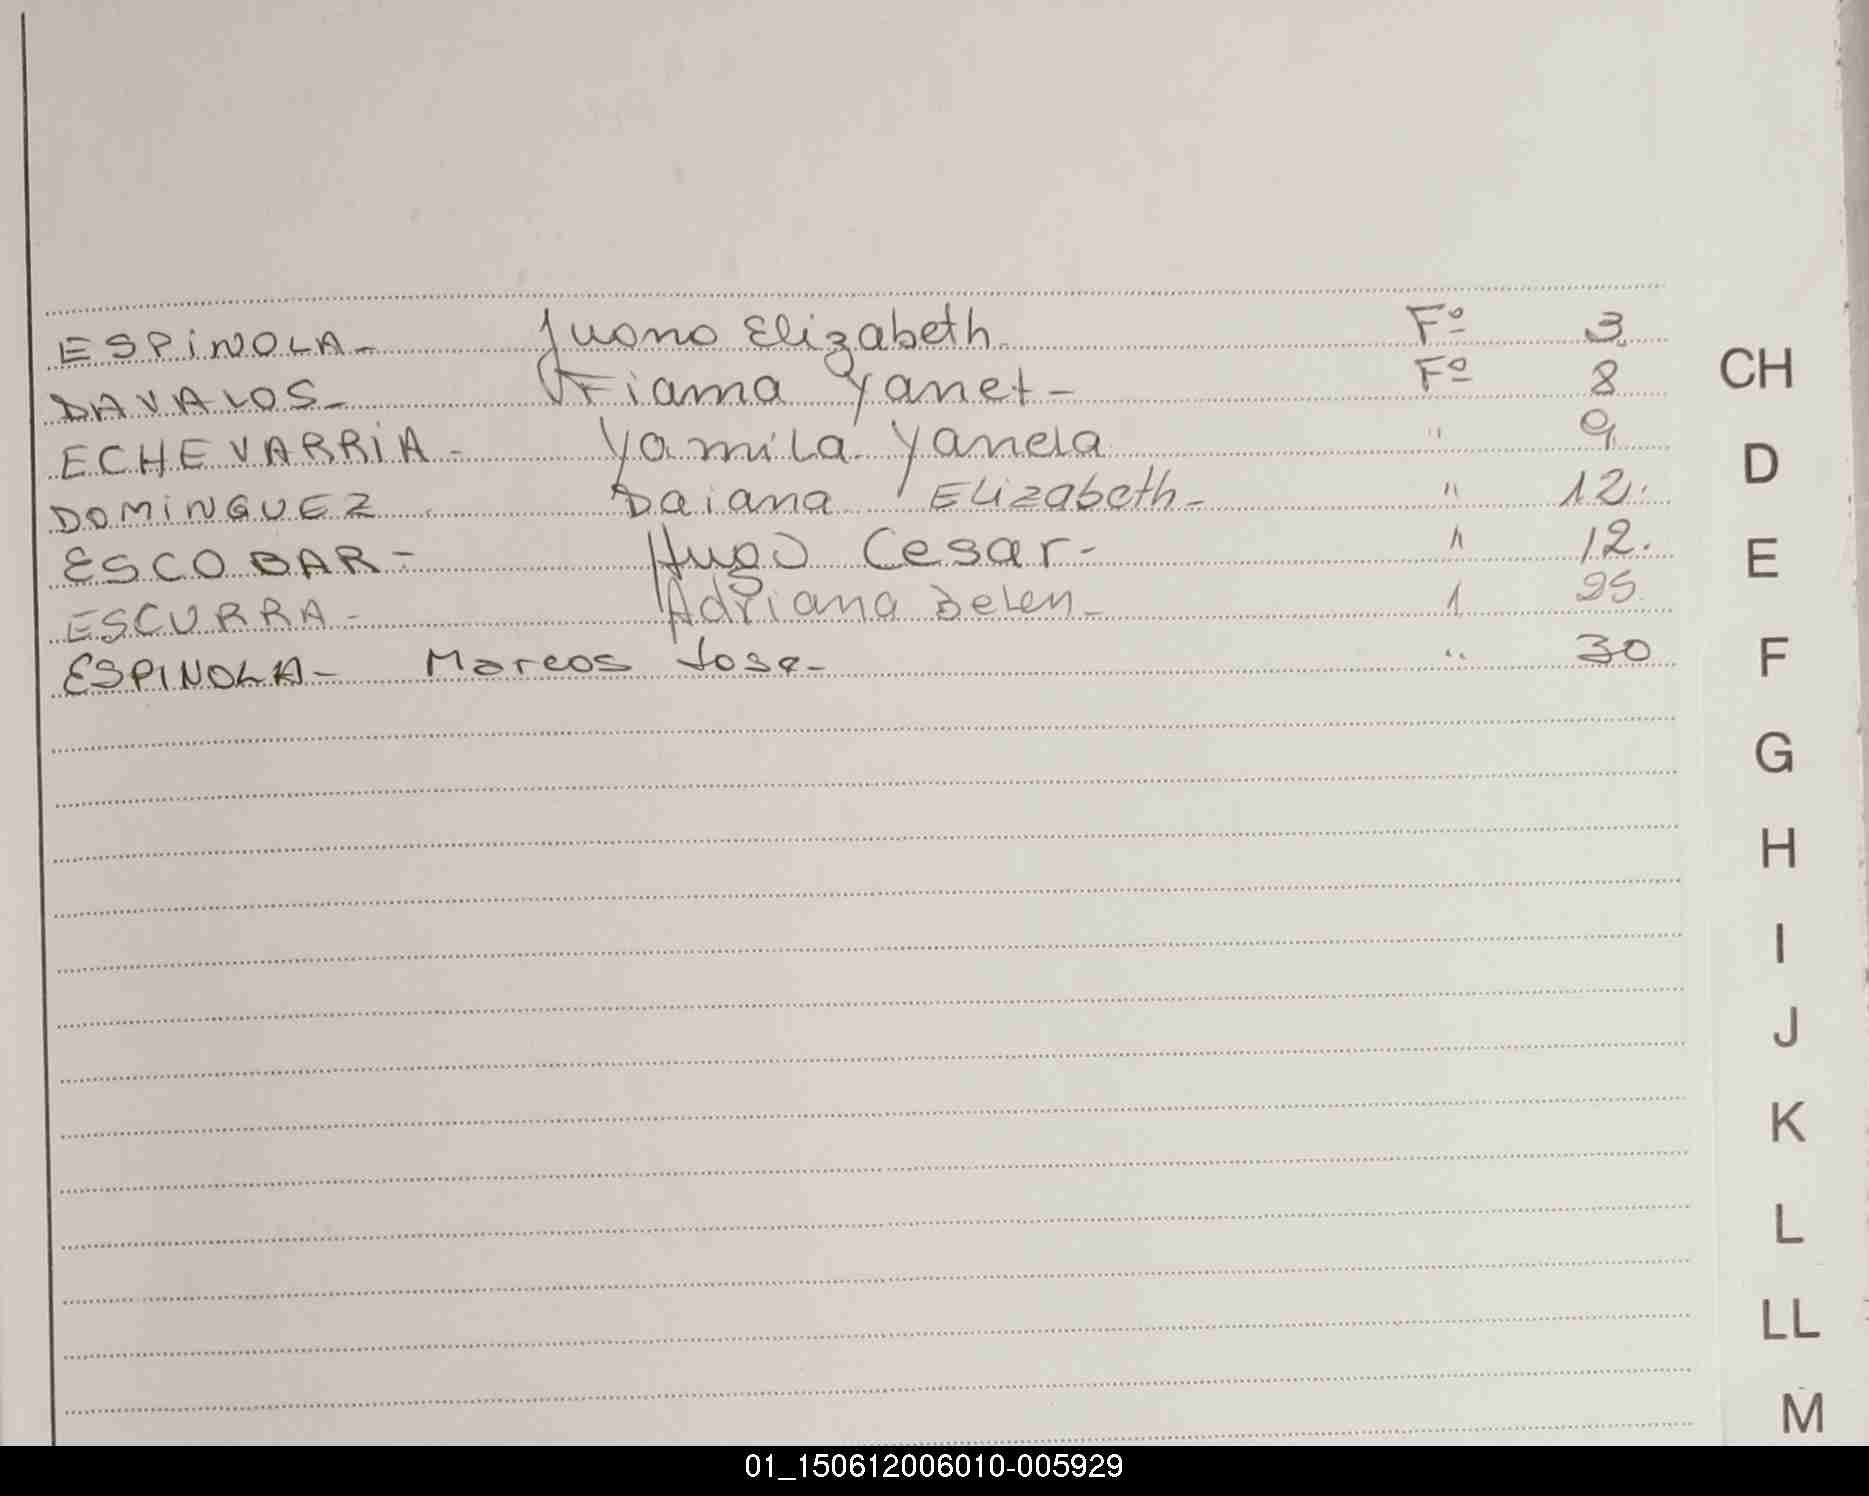 ESPINOLA- Juana Elizabeth Fº 3
DAVALOS- Fiama Yanet- Fº 8
ECHEVARRIA- Yamila Yanela " 9
DOMINGUEZ Daiana Elizabeth- " 12.
ESCOBAR- Hugo Cesar- " 12.
ESCURRA- Adriana Belen- " 25
ESPINOLA- Marcos Jose- " 30
CH
D
E
F
G
H
I
J
K
L
LL
M
01_150612006010-005929